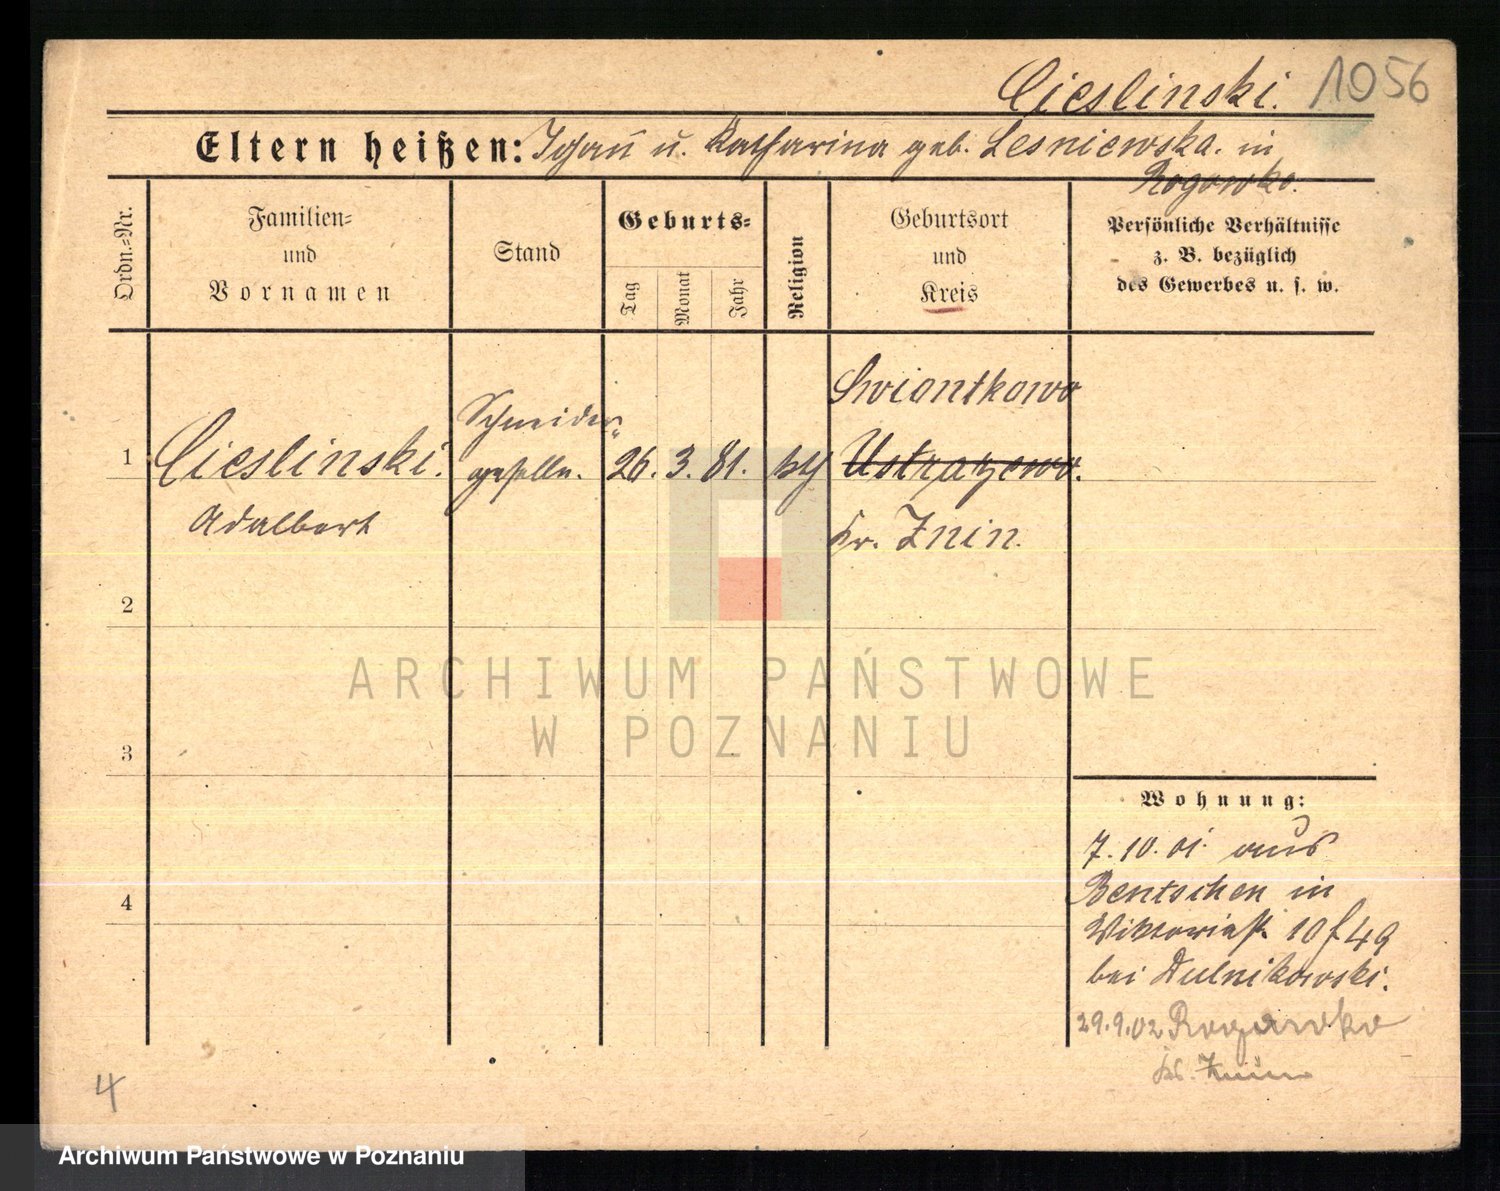 Cieslinski. 1056
Eltern heißen: Johan̄ u. Katharina geb. Lesniewska. in
Rogowko.
Ordn.-Nr.
Familien-
und
Vornamen
Stand
Geburts-
Tag
Monat
Jahr
Religion
Geburtsort
und
Kreis
Persönliche Verhältnisse
z. B. bezüglich
des Gewerbes u. s. w.
1
Cieslinski.
Adalbert
Schneider-
geselle.
26. 3. 81. kth
Swiantkowo
Ustaszewo.
Kr. Znin.
2
3
4
Wohnung:
7.10.01. aus
Bentschen in
Viktoriast. 10 f 49
bei Dulnikowski.
29.9.02 Rogowko
Kr. Znin
4
ARCHIWUM PAŃSTWOWE
W POZNANIU
Archiwum Państwowe w Poznaniu